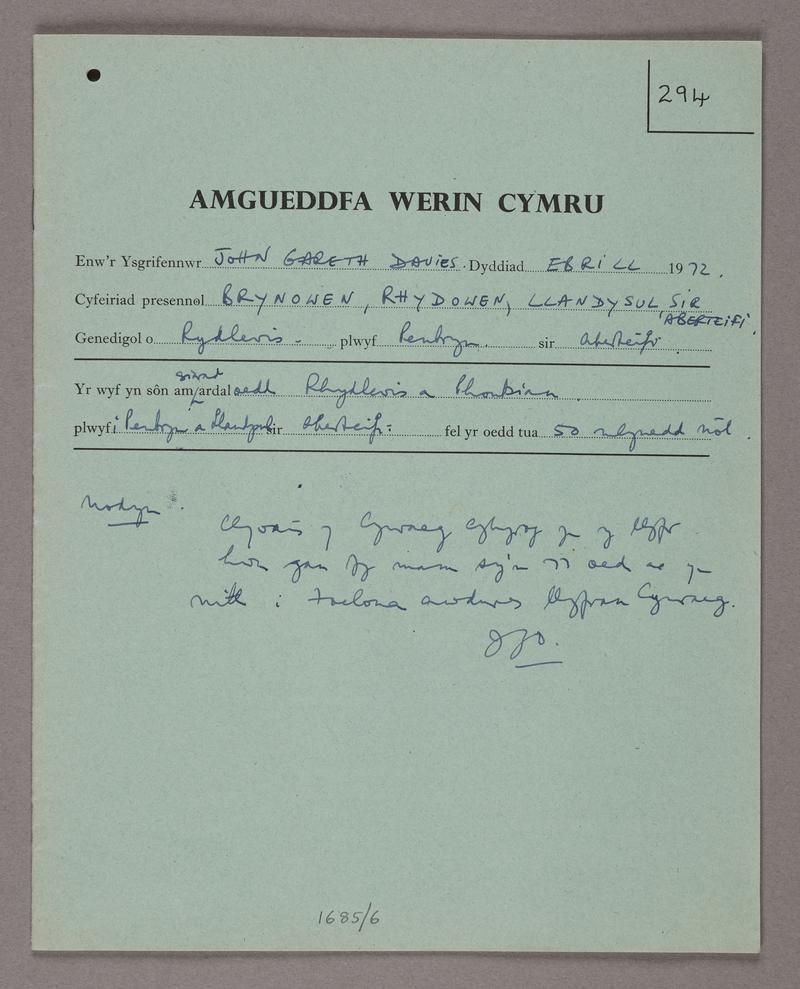 294
AMGUEDDFA WERIN CYMRU
Enw'r Ysgrifennwr JOHN GARETH DAVIES. Dyddiad EBRILL 1972.
Cyfeiriad presennol BRYNOWEN, RHYDOWEN, LLANDYSUL SIR
'ABERTEIFI'.
Genedigol o Rydlewis plwyf Penbryn sir Aberteifi
Yr wyf yn sôn am/ardaloedd Rhydlewis a
plwyf i Penbryn a sir Aberteifi fel yr oedd tua 50 mlynedd nôl.
Nodyn.
Clywais y Cymraeg yn y llyfr
hwn gan fy mam sy'n 77 oed ac yn
nith i Moelona awdures llyfrau Cymraeg.
JGD.
1685/6